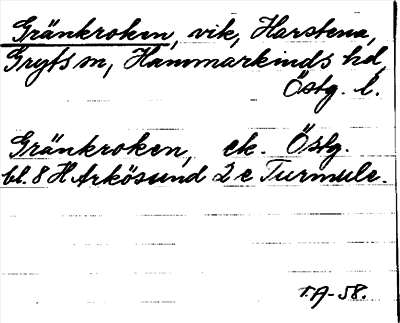 Gränkroken, vik, Harstena,
Gryts sn, Hammarkinds hd,
Östg. l.
Gränkroken, ek. Östg.
bl. 8 H Arkösund 2 c Turmule.
T.A-58.